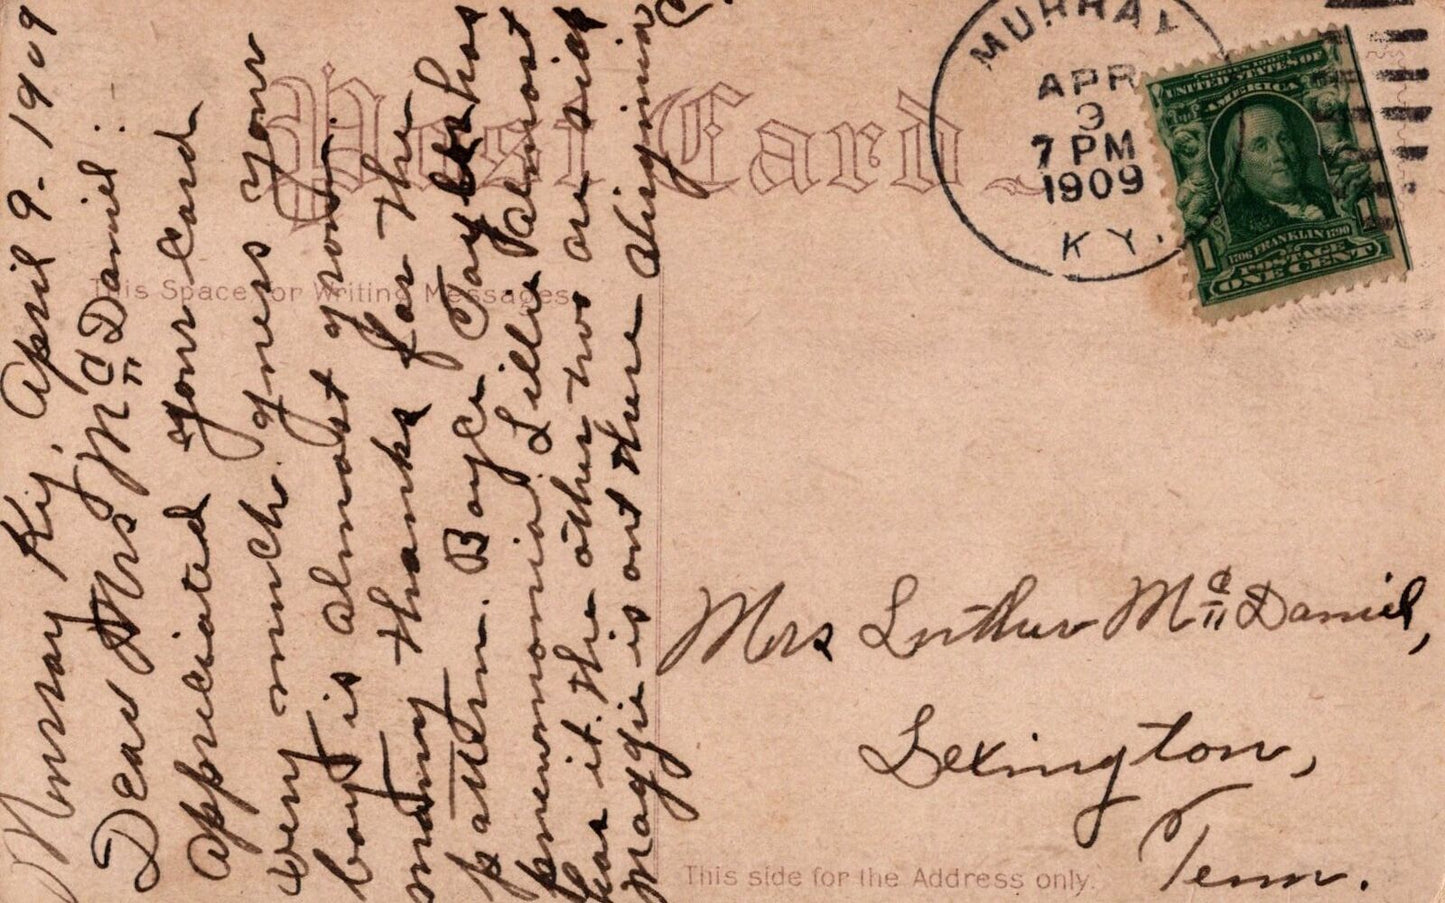 Murray Ky. April 9-1909
Dear Mrs McDaniel:
Appreciated your card
very much. guess your
boy is almost grown.
many thanks for the
pattern. Boyce Taylor has
pneumonia. Lillie almost
has it. the other two are sick
Maggie is out there alignmia
Post Card
This Space for Writing Messages
MURRAY
APR
9
7 PM
1909
KY.
SERIES 1902
UNITED STATES OF
AMERICA
1706 FRANKLIN 1790
POSTAGE
1 1
ONE CENT
Mrs Luther McDaniel,
Lexington,
Tenn.
This side for the Address only.